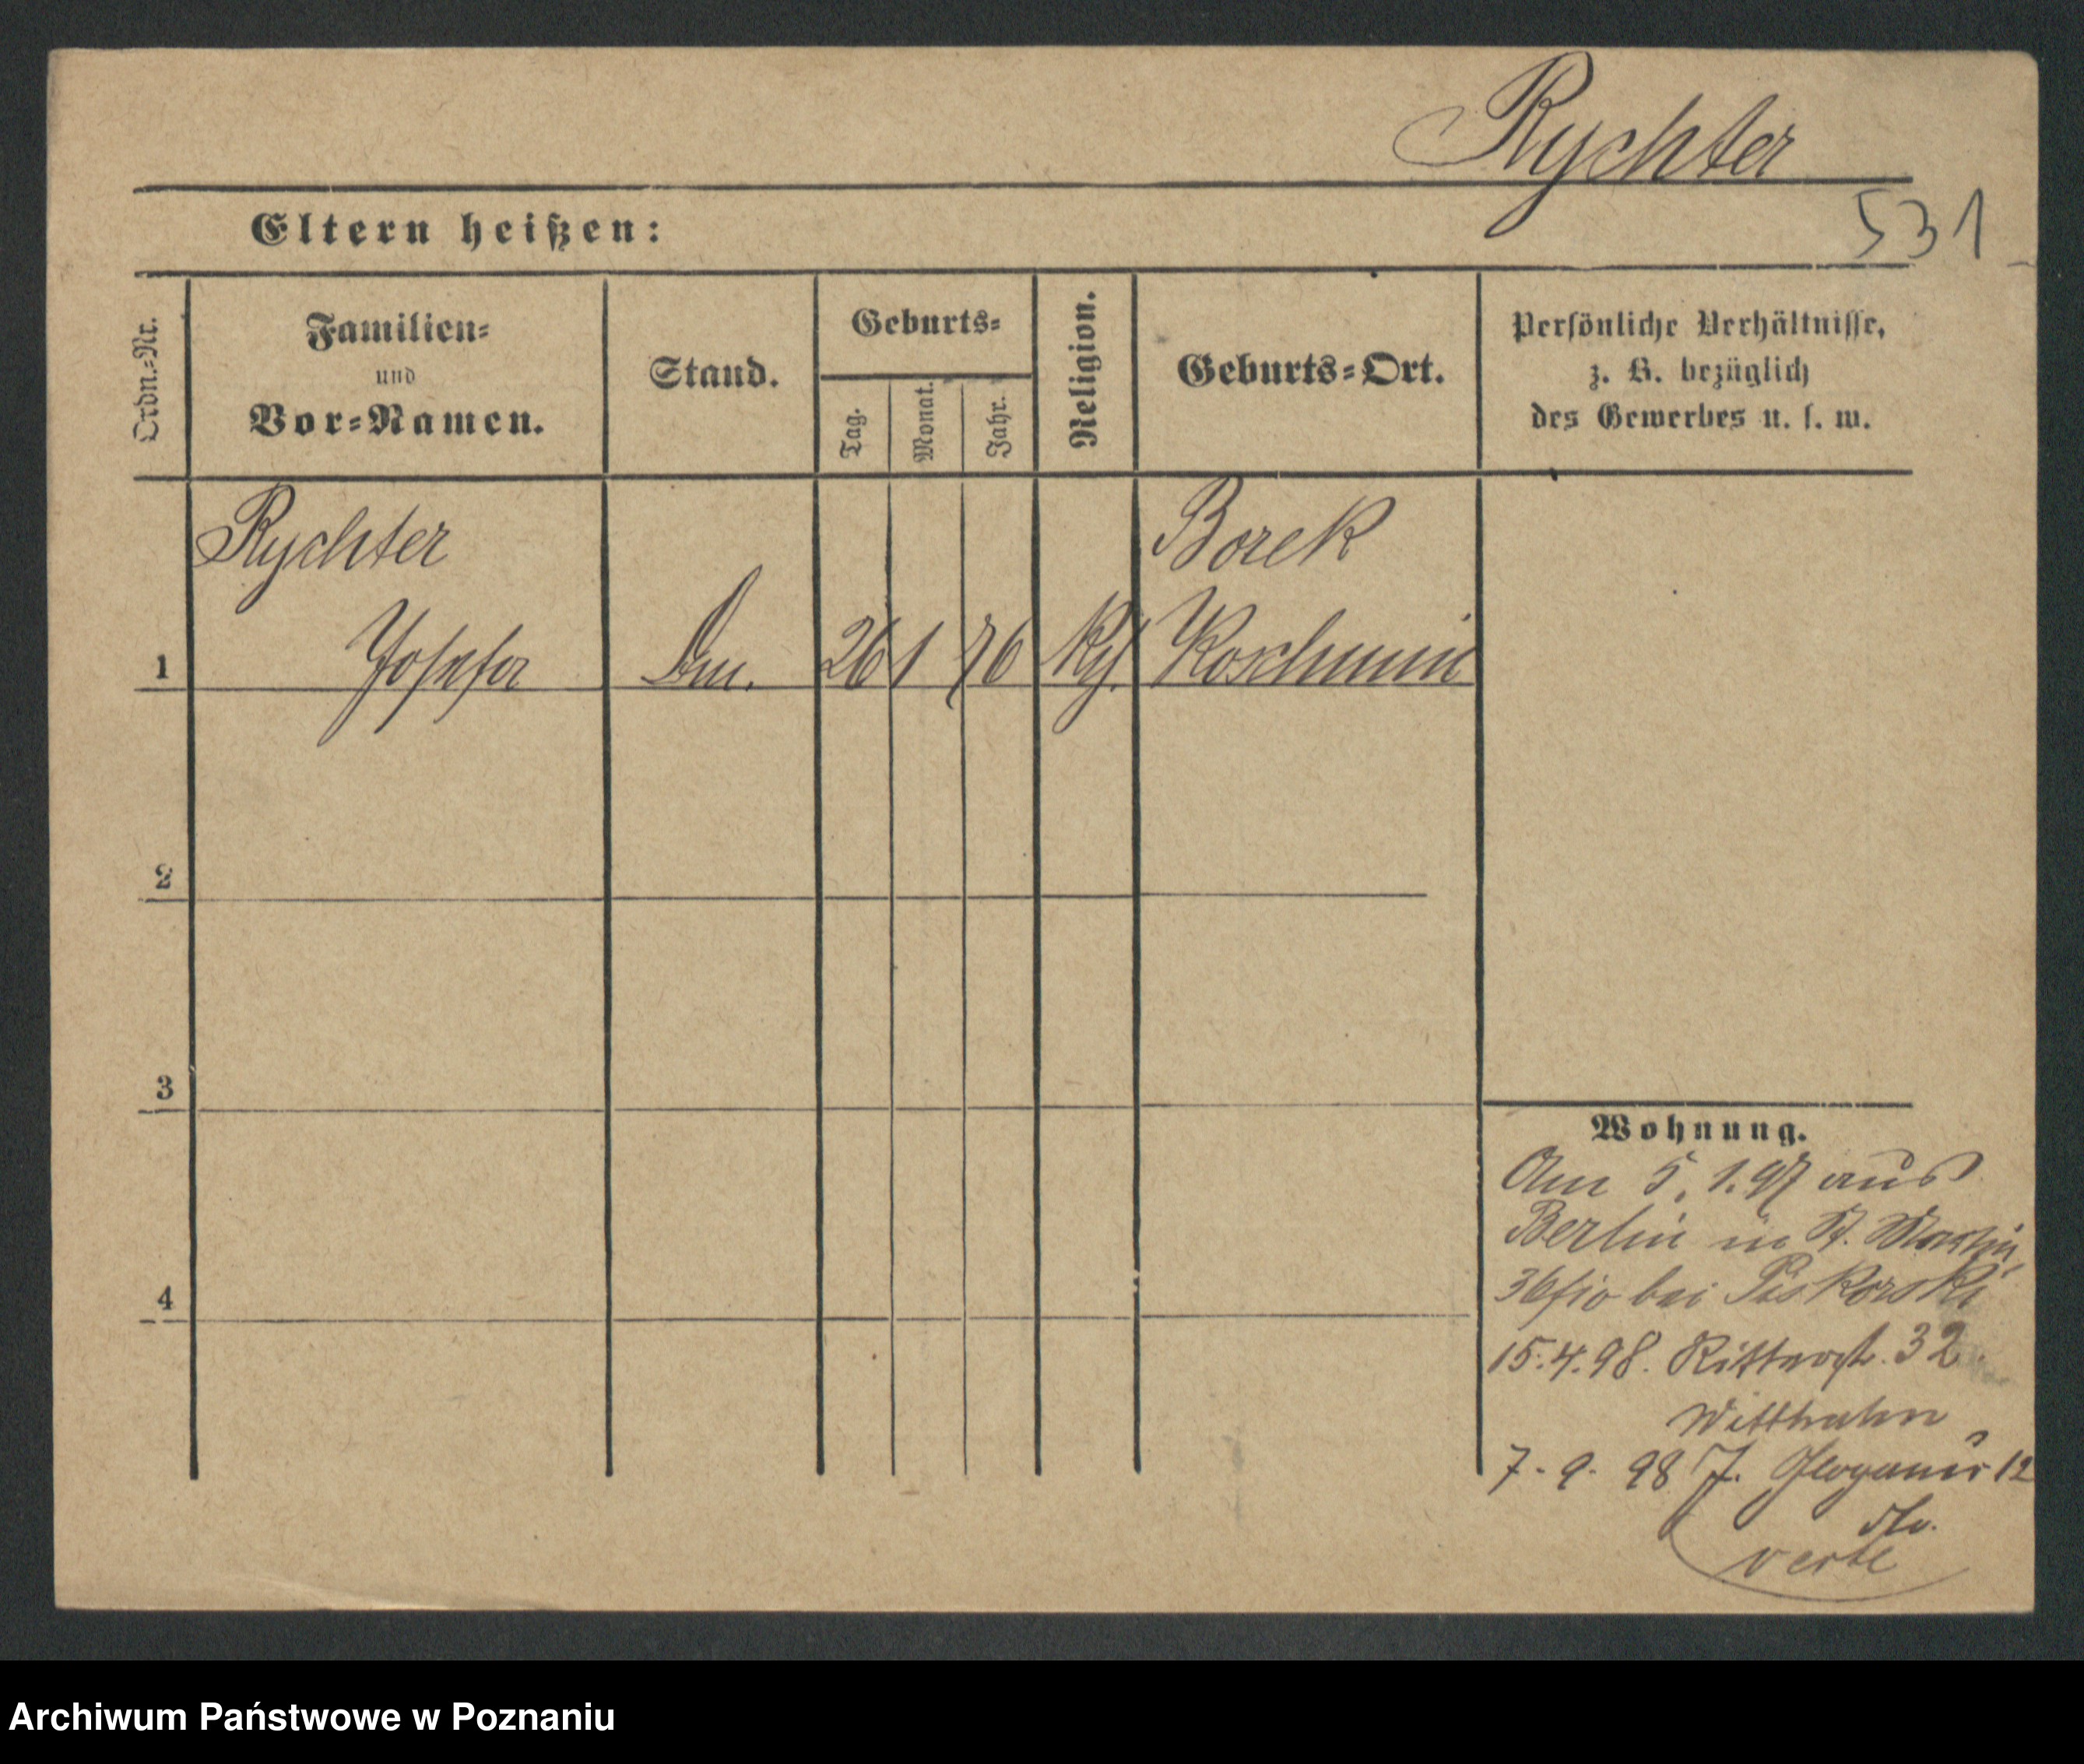 Rychter
531
Eltern heißen:
Ordn.-Nr.
Familien-
und
Vor-Namen.
Stand.
Geburts-
Tag.
Monat.
Jahr.
Religion.
Geburts-Ort.
Persönliche Verhältnisse,
z. B. bezüglich
des Gewerbes u. s. w.
Rychter
Borek
1 Josefa 26 1 76 Koschmin
2
3
4
Wohnung.
Am 5. 1. 97 aus
Berlin in St. Martin
36 bei Piskorski
15.4.98. Ritterstr. 32.
Witthuhn
7. 9. 98 J. 12
verte
Archiwum Państwowe w Poznaniu